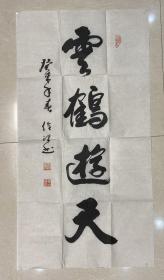 雲鶴遊天
癸未年春